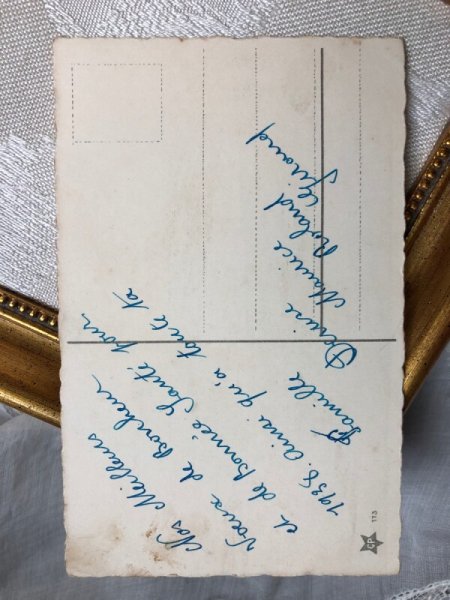 Nos Meilleurs
Voeux de Bonheur
et de Bonnée Santé pour
1938. Ainsi qu'à toute ta
Famille
Denise Maurice
Roland
Giraud
CP 173